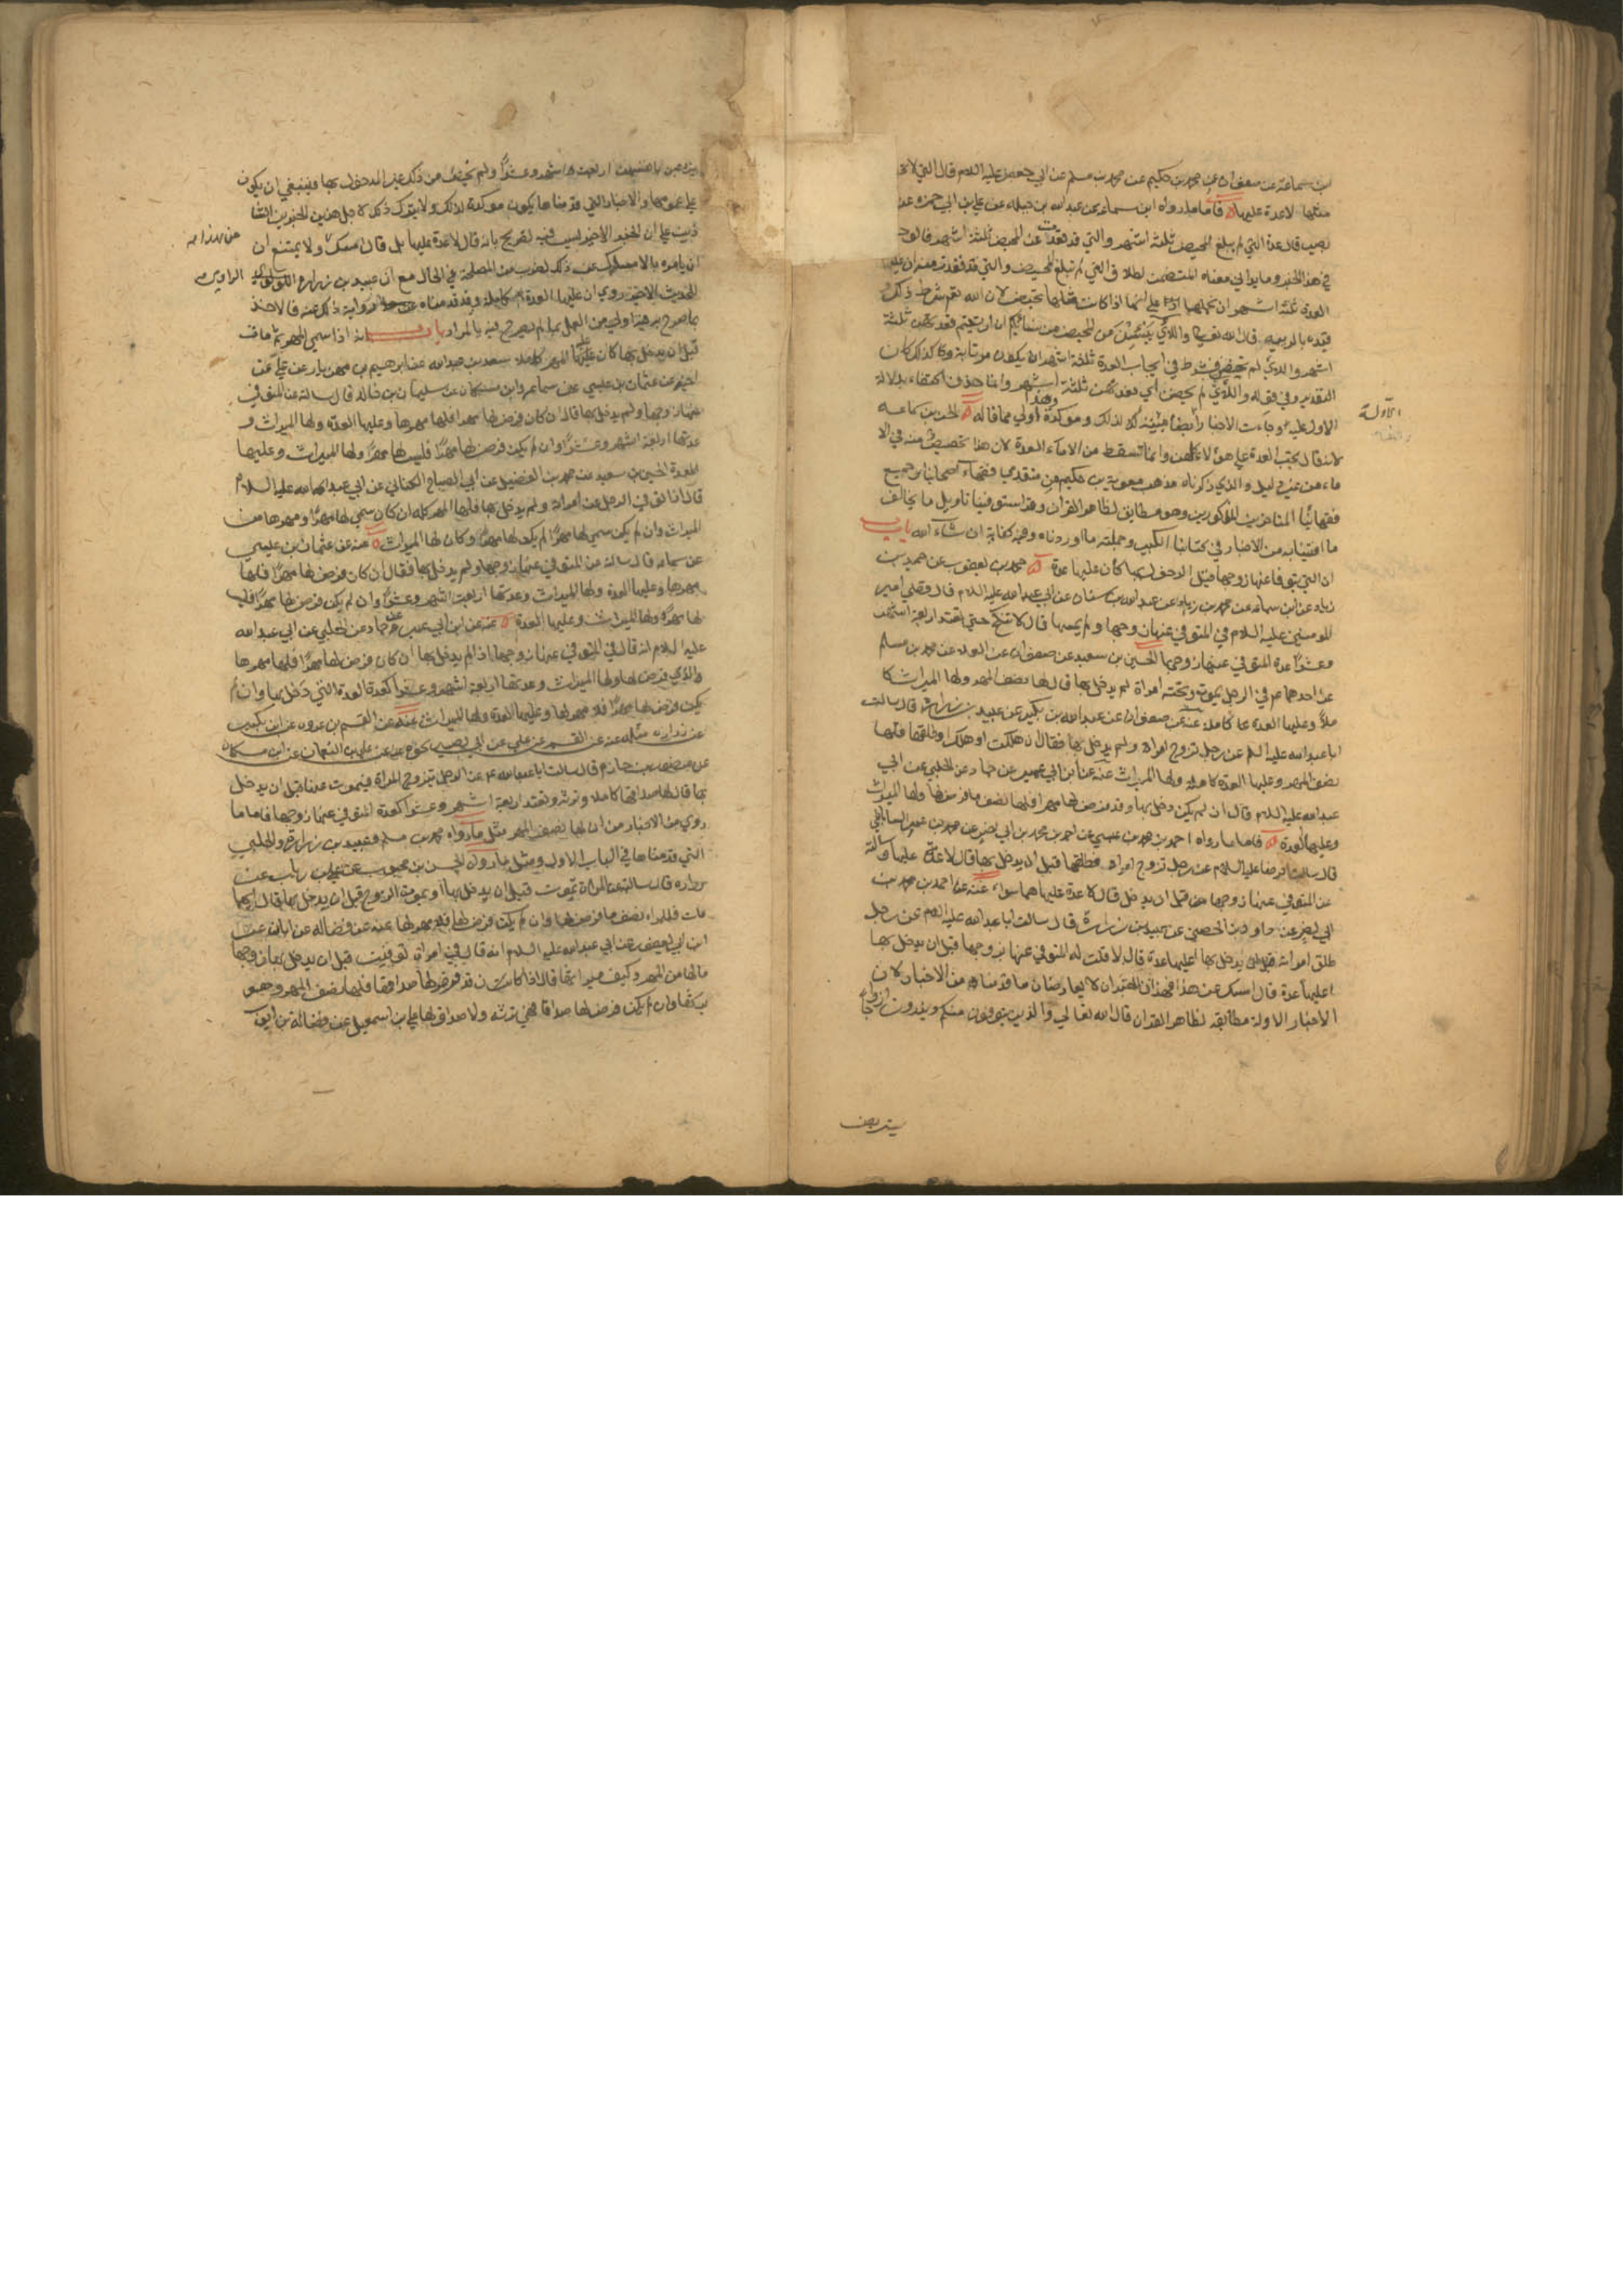 بن سماعة عن صفوان عن محمد بن حكيم عن محمد بن مسلم عن ابي جعفر عليه السلام قال التي لا تحبل
مثلها لا عدة عليها فاما ما رواه ابن سماعة عن عبد الله بن جبلة عن علي بن ابي حمزة عن
بصير قال عدة التي لم يبلغ المحيض ثلثة اشهر والتي قد قعدت عن المحيض ثلثة اشهر فالوجه
في هذا الخبر وما يوا في معناه المتضمن لطلاق التي لم تبلغ المحيض والتي قد
العدة ثلثة اشهر ان نحملها على انما اذا كانت مثلها تحيض لان الله تعالى شرط ذلك و
قيده بالريبة قال الله تعالى واللائي يئسن من المحيض من نسائكم ان ارتبتم فعدتهن ثلثة
اشهر واللائي لم يحضن فشرط في ايجاب العدة ثلثة اشهر ان يكون مرتابة وكذلك كان
التقدير في قوله واللائي لم يحضن اي فعدتهن ثلثة اشهر وانما حذف اكتفاء بدلالة
الاول عليه وجاءت الاخبار ايضا مبينة لذلك وموكدة وهذا اولى مما قاله الحسن بن سماعه
لانه قال تجب العدة على هؤلاء كلهن وانما تسقط من الاماء العدة لان هذا تخصيص منه في الا
ماء من غير دليل والذي ذكرناه مذهب معوية بن حكيم من متقدمي فقهاء اصحابنا وجميع
فقهائنا المتاخرين المذكورين وهو مطابق لظاهر القران وقد استوفينا تاويل ما يخالف
ما افتينا به من الاخبار في كتابنا الكبير وجملته ما اوردناه وفيه كفاية ان شاء الله باب
ان التي يتوفا عنها زوجها قبل الدخول بها كان عليها عدة محمد بن يعقوب عن حميد بن
زياد عن ابن سماعة عن محمد بن زياد عن عبد الله بن سنان عن ابي عبد الله عليه السلام قال قضى امير
المومنين عليه السلام في المتوفى عنها زوجها ولم يمسها قال لا تنكح حتى تعتد اربعة اشهر
وعشرا عدة المتوفى عنها زوجها الحسين بن سعيد عن صفوان عن العلا عن محمد بن مسلم
عن احدهما ع في الرجل يموت وتحته امراة لم يدخل بها قال لها نصف المهر ولها الميراث كا
ملا وعليها العدة كاملة عنه عن صفوان عن عبد الله بن بكير عن عبيد بن زرارة قال سالت
ابا عبد الله عليه السلم عن رجل تزوج امراة ولم يدخل بها فقال ان هلكت او هلك او طلقها فلها
نصف المهر وعليها العدة كاملة ولها الميراث عنه عن ابن ابي عمير عن حماد عن الحلبي عن ابي
عبد الله عليه السلام قال ان لم يكن دخل بها وقد فرض لها مهرا فلها نصف ما فرض لها ولها الميراث
وعليها العدة فاما ما رواه احمد بن محمد بن عيسى عن احمد بن محمد بن ابي نصر عن محمد بن عمر الساباطي
قال سالت الرضا عليه السلام عن رجل تزوج امراة فطلقها قبل ان يدخل بها قال لا عدة عليها وسالته
عن المتوفى عنها زوجها من قبل ان يدخل قال لا عدة عليها هما سواء عنه عن احمد بن محمد بن
ابي نصر عن داود بن الحصين عن عبيد بن زرارة قال سالت ابا عبد الله عليه السلم عن رجل
طلق امراته قبل ان يدخل بها اعليها عدة قال لا قلت له المتوفى عنها زوجها قبل ان يدخل بها
اعليها عدة قال امسك عن هذا فهذان الخبران لا يعارضان ما قدمناه من الاخبار لان
الاخبار الاولة مطابقة لظاهر القران قال الله تعالى والذين يتوفون منكم ويذرون ازواجا
الاولة
يتربصن
يتربصن بانفسهن اربعة اشهر وعشرا ولم يخص من ذلك غير المدخول بها فينبغي ان يكون
على عمومها والاخبار التي قدمناها يكون موكدة لذلك ولا يترك ذلك لاجل هذين الخبرين الشا
ذين على ان الخبر الاخير ليس فيه تصريح بانه قال لا عدة عليها بل قال امسك ولا يمتنع ان
عن هذا
ان يامره بالامساك عن ذلك لضرب من المصلحة في الحال مع ان عبيد بن زرارة
الراوي
الحديث الاخير روى ان عليها العدة كاملة وقد قدمناه رواية ذلك عنه فالاخذ
بما صرح به اولى من العمل بما لم يصرح فيه بالمراد باب انه اذا سمى المهر ثم مات
قبل ان يدخل بها كان عليه المهر كاملا سعد بن عبد الله عن ابرهيم بن مهزيار عن علي عن
اخيه عن عثمان بن عيسى عن سماعة وابن مسكان عن سليمان بن خالد قال سالته عن المتوفى
عنها زوجها ولم يدخل بها قال ان كان فرض لها مهرا فلها مهرها وعليها العدة ولها الميراث و
عدتها اربعة اشهر وعشرا وان لم يكن فرض لها مهرا فليس لها مهر ولها الميراث وعليها
العدة الحسين بن سعيد عن محمد بن الفضيل عن ابي الصباح الكناني عن ابي عبد الله عليه السلام
قال اذا توفي الرجل عن امراته ولم يدخل بها فلها المهر كله ان كان سمى لها مهرا ومهرها من
الميراث وان لم يكن سمى لها مهرا لم يكن لها مهر وكان لها الميراث عنه عن عثمان بن عيسى
عن سماعة قال سالته عن المتوفى عنها زوجها ولم يدخل بها فقال ان كان فرض لها مهرا فلها
مهرها وعليها العدة ولها الميراث وعدتها اربعة اشهر وعشرا وان لم يكن فرض لها مهرا فليس
لها مهر ولها الميراث وعليها العدة عنه عن ابن ابي عمير عن حماد عن الحلبي عن ابي عبد الله
عليه السلام انه قال في المتوفى عنها زوجها اذا لم يدخل بها ان كان فرض لها مهرا فلها مهرها
والذي فرض لها ولها الميراث وعدتها اربعة اشهر وعشرا كعدة التي دخل بها وان لم
يكن فرض لها مهرا فلا مهر لها وعليها العدة ولها الميراث عنه عن القسم بن عروه عن ابن بكير
عن زرارة مثله عنه عن القسم عن علي عن ابي بصير نحوه عنه عن علي بن النعمان عن ابن مسكان
عن منصور بن حازم قال سالت ابا عبد الله ع عن الرجل يتزوج المراة فيموت عنها قبل ان يدخل
بها قال لها صداقها كاملا وترثه وتعتد اربعة اشهر وعشرا كعدة المتوفى عنها زوجها فاما ما
روي من الاخبار من ان لها نصف المهر مثل ما رواه محمد بن مسلم وعبيد بن زرارة والحلبي
التي قدمناها في الباب الاول ومثل ما رواه الحسن بن محبوب عن علي بن رئاب عن
زرارة قال سالته عن المراة تموت قبل ان يدخل بها او يموت الزوج قبل ان يدخل بها قال ايهما
مات فللمراة نصف ما فرض لها وان لم يكن فرض لها فلا مهر لها عنه عن فضالة عن ابان عن
ابن ابي يعفور عن ابي عبد الله عليه السلام انه قال في امراة توفيت قبل ان يدخل بها زوجها
ما لها من المهر وكيف ميراثها قال اذا كان قد فرض لها صداقا فلها نصف المهر وهو
يرثها وان لم يكن فرض لها صداقا فهي ترثه ولا صداق لها علي بن اسمعيل عن فضالة بن ايوب